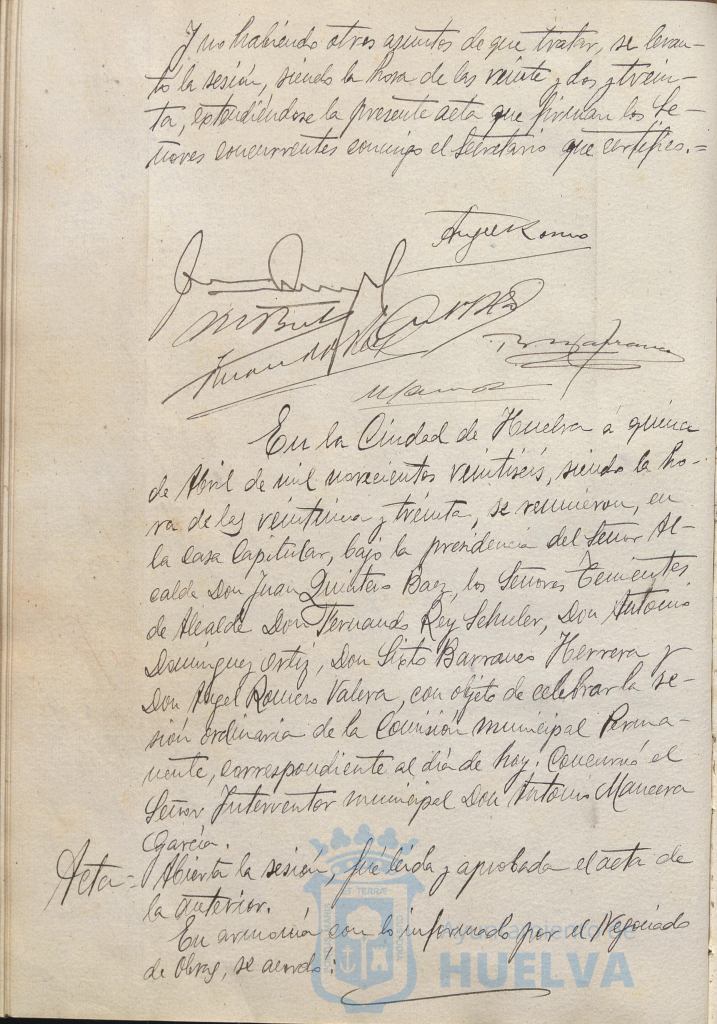 Y no habiendo otros asuntos de que tratar, se levan-
tó la sesión, siendo la hora de las veinte y dos y trein-
ta, extendiéndose la presente acta que firman los Se-
ñores concurrentes conmigo el Secretario que certifico.=
Angel Romero
En la Ciudad de Huelva á quince
de Abril de mil novecientos veintiseis, siendo la ho-
ra de las veintiuna y treinta, se reunieron, en
la casa Capitular, bajo la presidencia del Señor Al-
calde Don Juan Quintero Baez, los Señores Tenientes
de Alcalde Don Fernando Rey Schuler, Don Antonio
Dominguez Ortiz, Don Sixto Barranco Herrera y
Don Angel Romero Valera, con objeto de celebrar la se-
sión ordinaria de la Comisión municipal Perma-
nente, correspondiente al día de hoy. Concurrió el
Señor Interventor municipal Don Antonio Mancera
García.
Acta= Abierta la sesión, fué leida y aprobada el acta de
la anterior.
En armonía con lo informado por el Negociado
de Obras, se acordó:
Ayuntamiento de
HUELVA